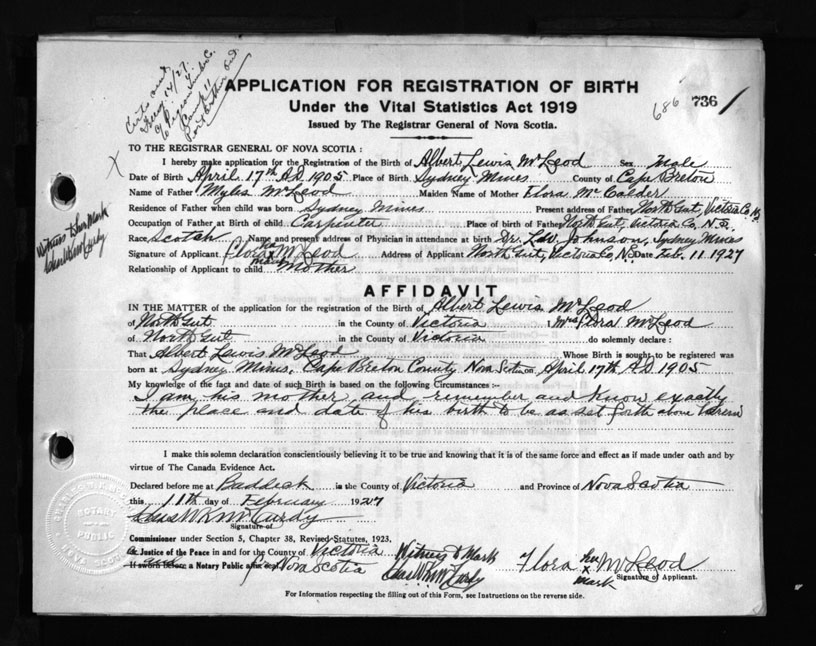 686 736
APPLICATION FOR REGISTRATION OF BIRTH
Under the Vital Statistics Act 1919
Issued by The Registrar General of Nova Scotia.
TO THE REGISTRAR GENERAL OF NOVA SCOTIA :
I hereby make application for the Registration of the Birth of Albert Lewis McLeod Sex Male
Date of Birth April 17th A.D 1905 Place of Birth Sydney Mines County of Cape Breton
Name of Father Myles McLeod Maiden Name of Mother Flora McCalder
Residence of Father when child was born Sydney Mines Present address of Father North Gut, Victoria Co. N.S
Occupation of Father at Birth of child Carpenter Place of birth of Father North Gut, Victoria Co, N.S.
Race Scotch Name and present address of Physician in attendance at birth Dr. L.W. Johnson, Sydney Mines
Signature of Applicant Flora her x mark McLeod Address of Applicant North Gut, Victoria Co, N.S Date Feb. 11 1927
Relationship of Applicant to child Mother
Witness to her Mark
Chas W K McCurdy
AFFIDAVIT
IN THE MATTER of the application for the registration of the Birth of Albert Lewis McLeod
of North Gut in the County of Victoria Mrs Flora McLeod
of North Gut in the County of Victoria do solemnly declare :
That Albert Lewis McLeod Whose Birth is sought to be registered was
born at Sydney Mines, Cape Breton County Nova Scotia on April 17th A.D 1905
My knowledge of the fact and date of such Birth is based on the following Circumstances :-
I am his mother, and remember and know exactly
the place and date of his birth to be as set forth above herein
I make this solemn declaration conscientiously believing it to be true and knowing that it is of the same force and effect as if made under oath and by
virtue of The Canada Evidence Act.
Declared before me at Baddeck in the County of Victoria and Province of Nova Scotia
this 11th day of February 1927
Chas W K McCurdy
Signature of
Commissioner under Section 5, Chapter 38, Revised Statutes, 1923,
Justice of the Peace in and for the County of Victoria Witness to Mark
If sworn before a Notary Public Nova Scotia Chas W K McCurdy Flora her x mark McLeod
Signature of Applicant.
NOTARY PUBLIC
NOVA SCOTIA
For Information respecting the filling out of this Form, see Instructions on the reverse side.